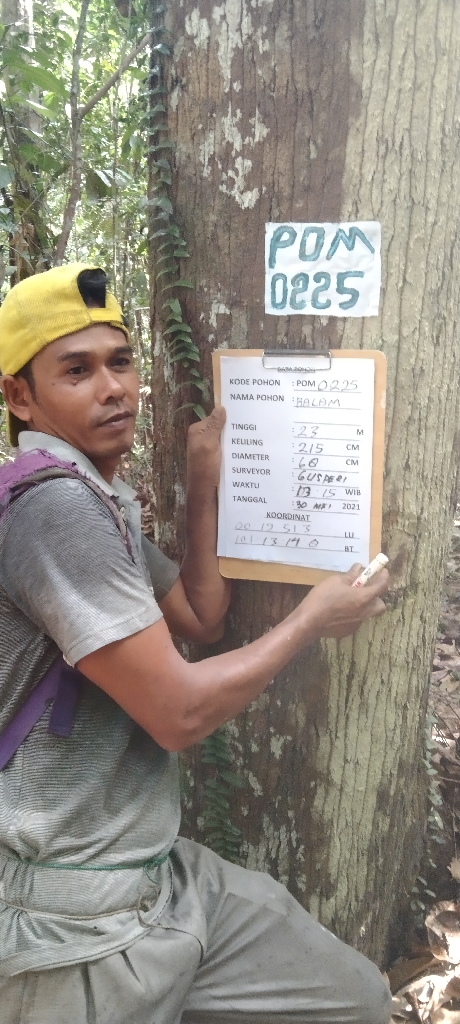 POM
0225
DATA POHON
KODE POHON : POM 0225
NAMA POHON : BALAM
TINGGI : 23 M
KELILING : 215 CM
DIAMETER : 68 CM
SURVEYOR : GUSPERI
WAKTU : 13 15 WIB
TANGGAL : 30 MEI 2021
KOORDINAT
00 19 51 3 LU
101 13 19 0 BT